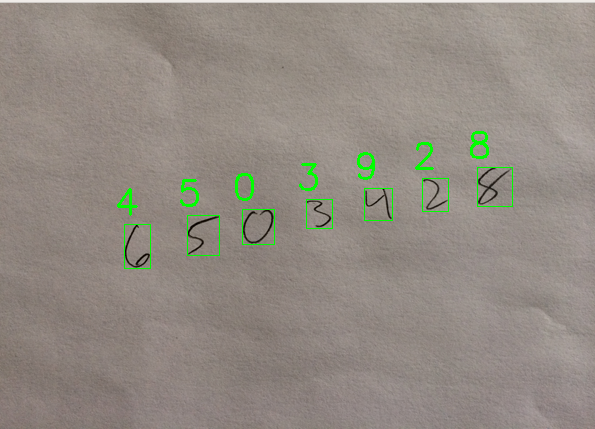 4 5 0 3 9 2 8
6 5 0 3 4 2 8